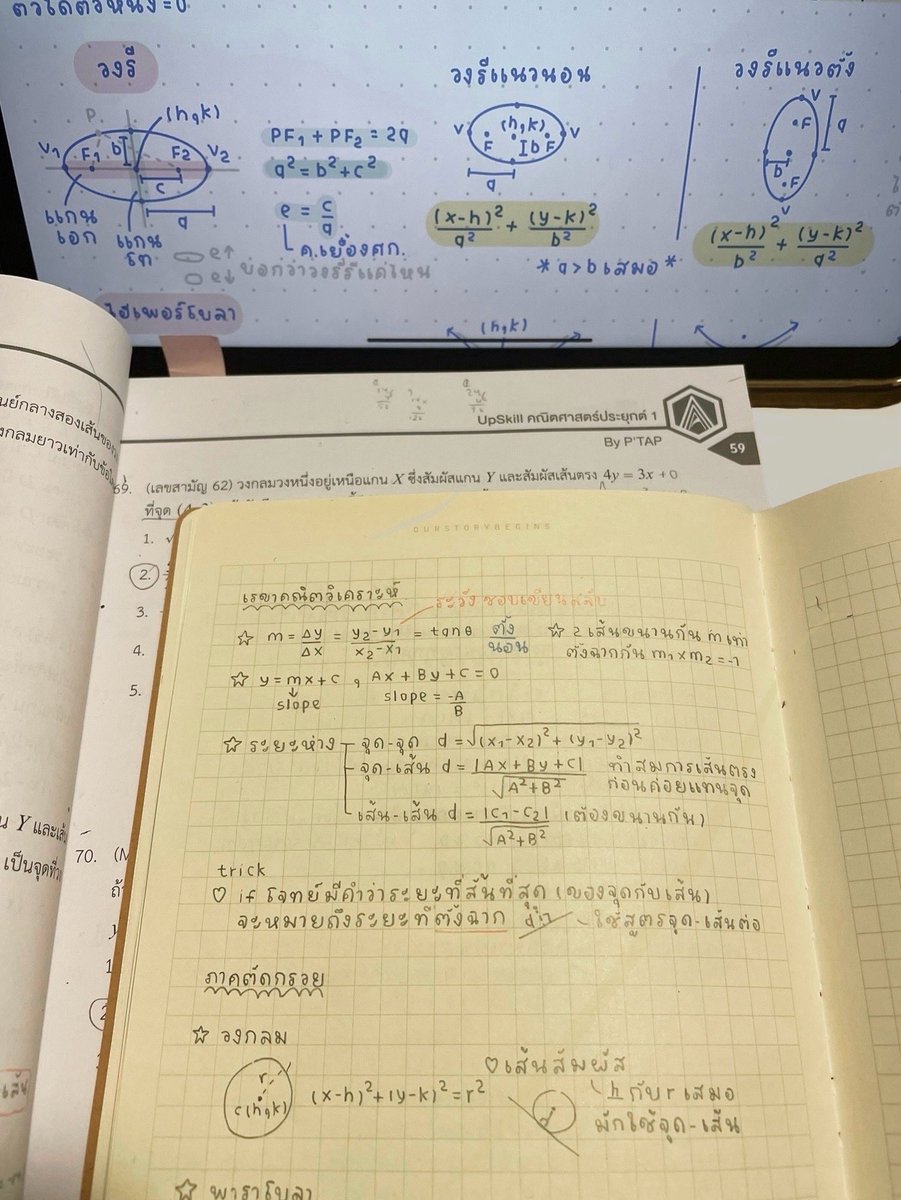 ตัวใดตัวหนึ่ง=0
วงรี
P
(h,k)
V₁ F₁ b F₂ V₂
c
a
แกนเอก
แกนโท
PF₁ + PF₂ = 2a
a² = b² + c²
e = c/a
ค.เยื้องศก.
e↑
e↓
บอกว่าวงรีรีแค่ไหน
วงรีแนวนอน
(h,k)
V F b F V
a
(x-h)²/a² + (y-k)²/b²
*a>b เสมอ*
วงรีแนวตั้ง
V
F
b
a
F
V
(x-h)²/b² + (y-k)²/a²
ไฮเพอร์โบลา
(h,k)
UpSkill คณิตศาสตร์ประยุกต์ 1
By P'TAP
59
69. (เลขสามัญ 62) วงกลมวงหนึ่งอยู่เหนือแกน X ซึ่งสัมผัสแกน Y และสัมผัสเส้นตรง 4y = 3x + 0
ที่จุด
1.
2.
3.
4.
5.
70.
Y และ
เป็นจุดที่
OURSTORYBEGINS
เรขาคณิตวิเคราะห์
ระวัง ชอบเขียนสลับ
☆ m = Δy/Δx = y₂-y₁/x₂-x₁ = tanθ ตั้ง/นอน
☆ 2 เส้นขนานกัน m เท่า
ตั้งฉากกัน m₁×m₂=-1
☆ y=mx+c , Ax+By+C=0
slope slope = -A/B
☆ ระยะห่าง จุด-จุด d = √(x₁-x₂)²+(y₁-y₂)²
จุด-เส้น d = |Ax+By+C|/√A²+B² ทำสมการเส้นตรง
ก่อนค่อยแทนจุด
เส้น-เส้น d = |C₁-C₂|/√A²+B² (ต้องขนานกัน)
trick
♡ if โจทย์มีคำว่าระยะที่สั้นที่สุด (ของจุดกับเส้น)
จะหมายถึงระยะที่ตั้งฉาก ใช้สูตรจุด-เส้นต่อ
ภาคตัดกรวย
☆ วงกลม
r
c(h,k)
(x-h)²+(y-k)²=r²
♡ เส้นสัมผัส
⊥ กับ r เสมอ
มักใช้จุด-เส้น
☆ พาราโบลา